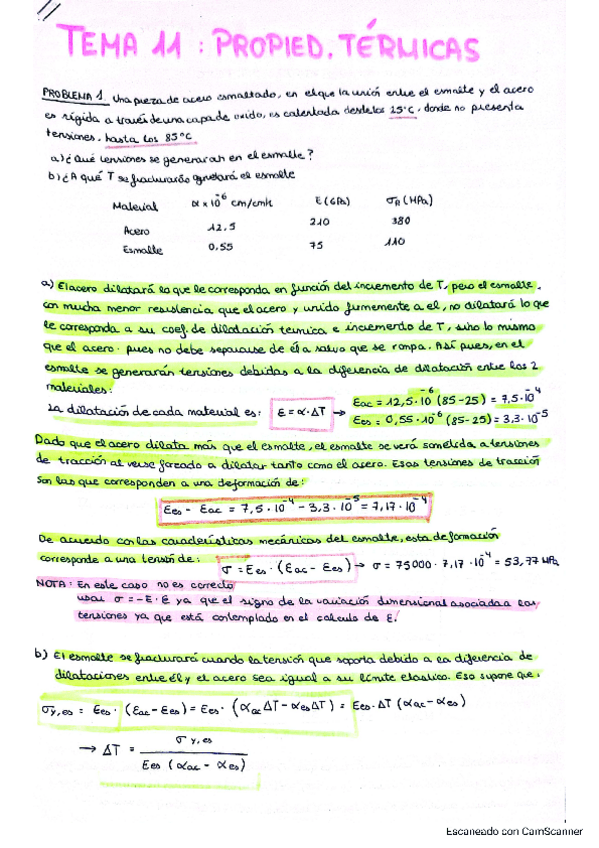 TEMA 11 : PROPIED. TÉRMICAS
PROBLEMA 1. Una pieza de acero esmaltado, en el que la unión entre el esmalte y el acero
es rígida a través de una capa de oxido, es calentada desde los 25°C, donde no presenta
tensiones, hasta los 85°C
a) ¿Qué tensiones se generaran en el esmalte?
b) ¿A qué T se fracturará el esmalte
Material α x 10^-6 cm/cmK E (GPa) σR (MPa)
Acero 12,5 210 380
Esmalte 0.55 75 110
a) El acero dilatará lo que le corresponda en función del incremento de T, pero el esmalte,
con mucha menor resistencia que el acero y unido firmemente a el, no dilatará lo que
le corresponda a su coef. de dilatación termica e incremento de T, sino lo mismo
que el acero. pues no debe separarse de él a salvo que se rompa. Así pues, en el
esmalte se generarán tensiones debidas a la diferencia de dilatación entre los 2
materiales:
La dilatación de cada material es: ε = α·ΔT → εac = 12,5·10^-6 (85-25) = 7,5·10^-4
εes = 0,55·10^-6 (85-25) = 3,3·10^-5
Dado que el acero dilata más que el esmalte, el esmalte se verá sometida a tensiones
de tracción al verse forzado a dilatar tanto como el acero. Esas tensiones de tracción
son las que corresponden a una deformación de:
εes - εac = 7,5·10^-4 - 3,3·10^-5 = 7,17·10^-4
De acuerdo con las características mecánicas del esmalte, esta deformación
corresponde a una tensión de: σ = Ees · (εac - εes) → σ = 75000 · 7,17·10^-4 = 53,77 MPa
NOTA: En este caso no es correcto
usar σ = -E·ε ya que el signo de la variación dimensional asociada a las
tensiones ya que está contemplado en el calculo de ε.
b) El esmalte se fracturará cuando la tensión que soporta debido a la diferencia de
dilataciones entre él y el acero sea igual a su límite elastico. Eso supone que:
σy,es = Ees · (εac - εes) = Ees · (αac ΔT - αes ΔT) = Ees · ΔT (αac - αes)
→ ΔT = σy,es / Ees (αac - αes)
Escaneado con CamScanner